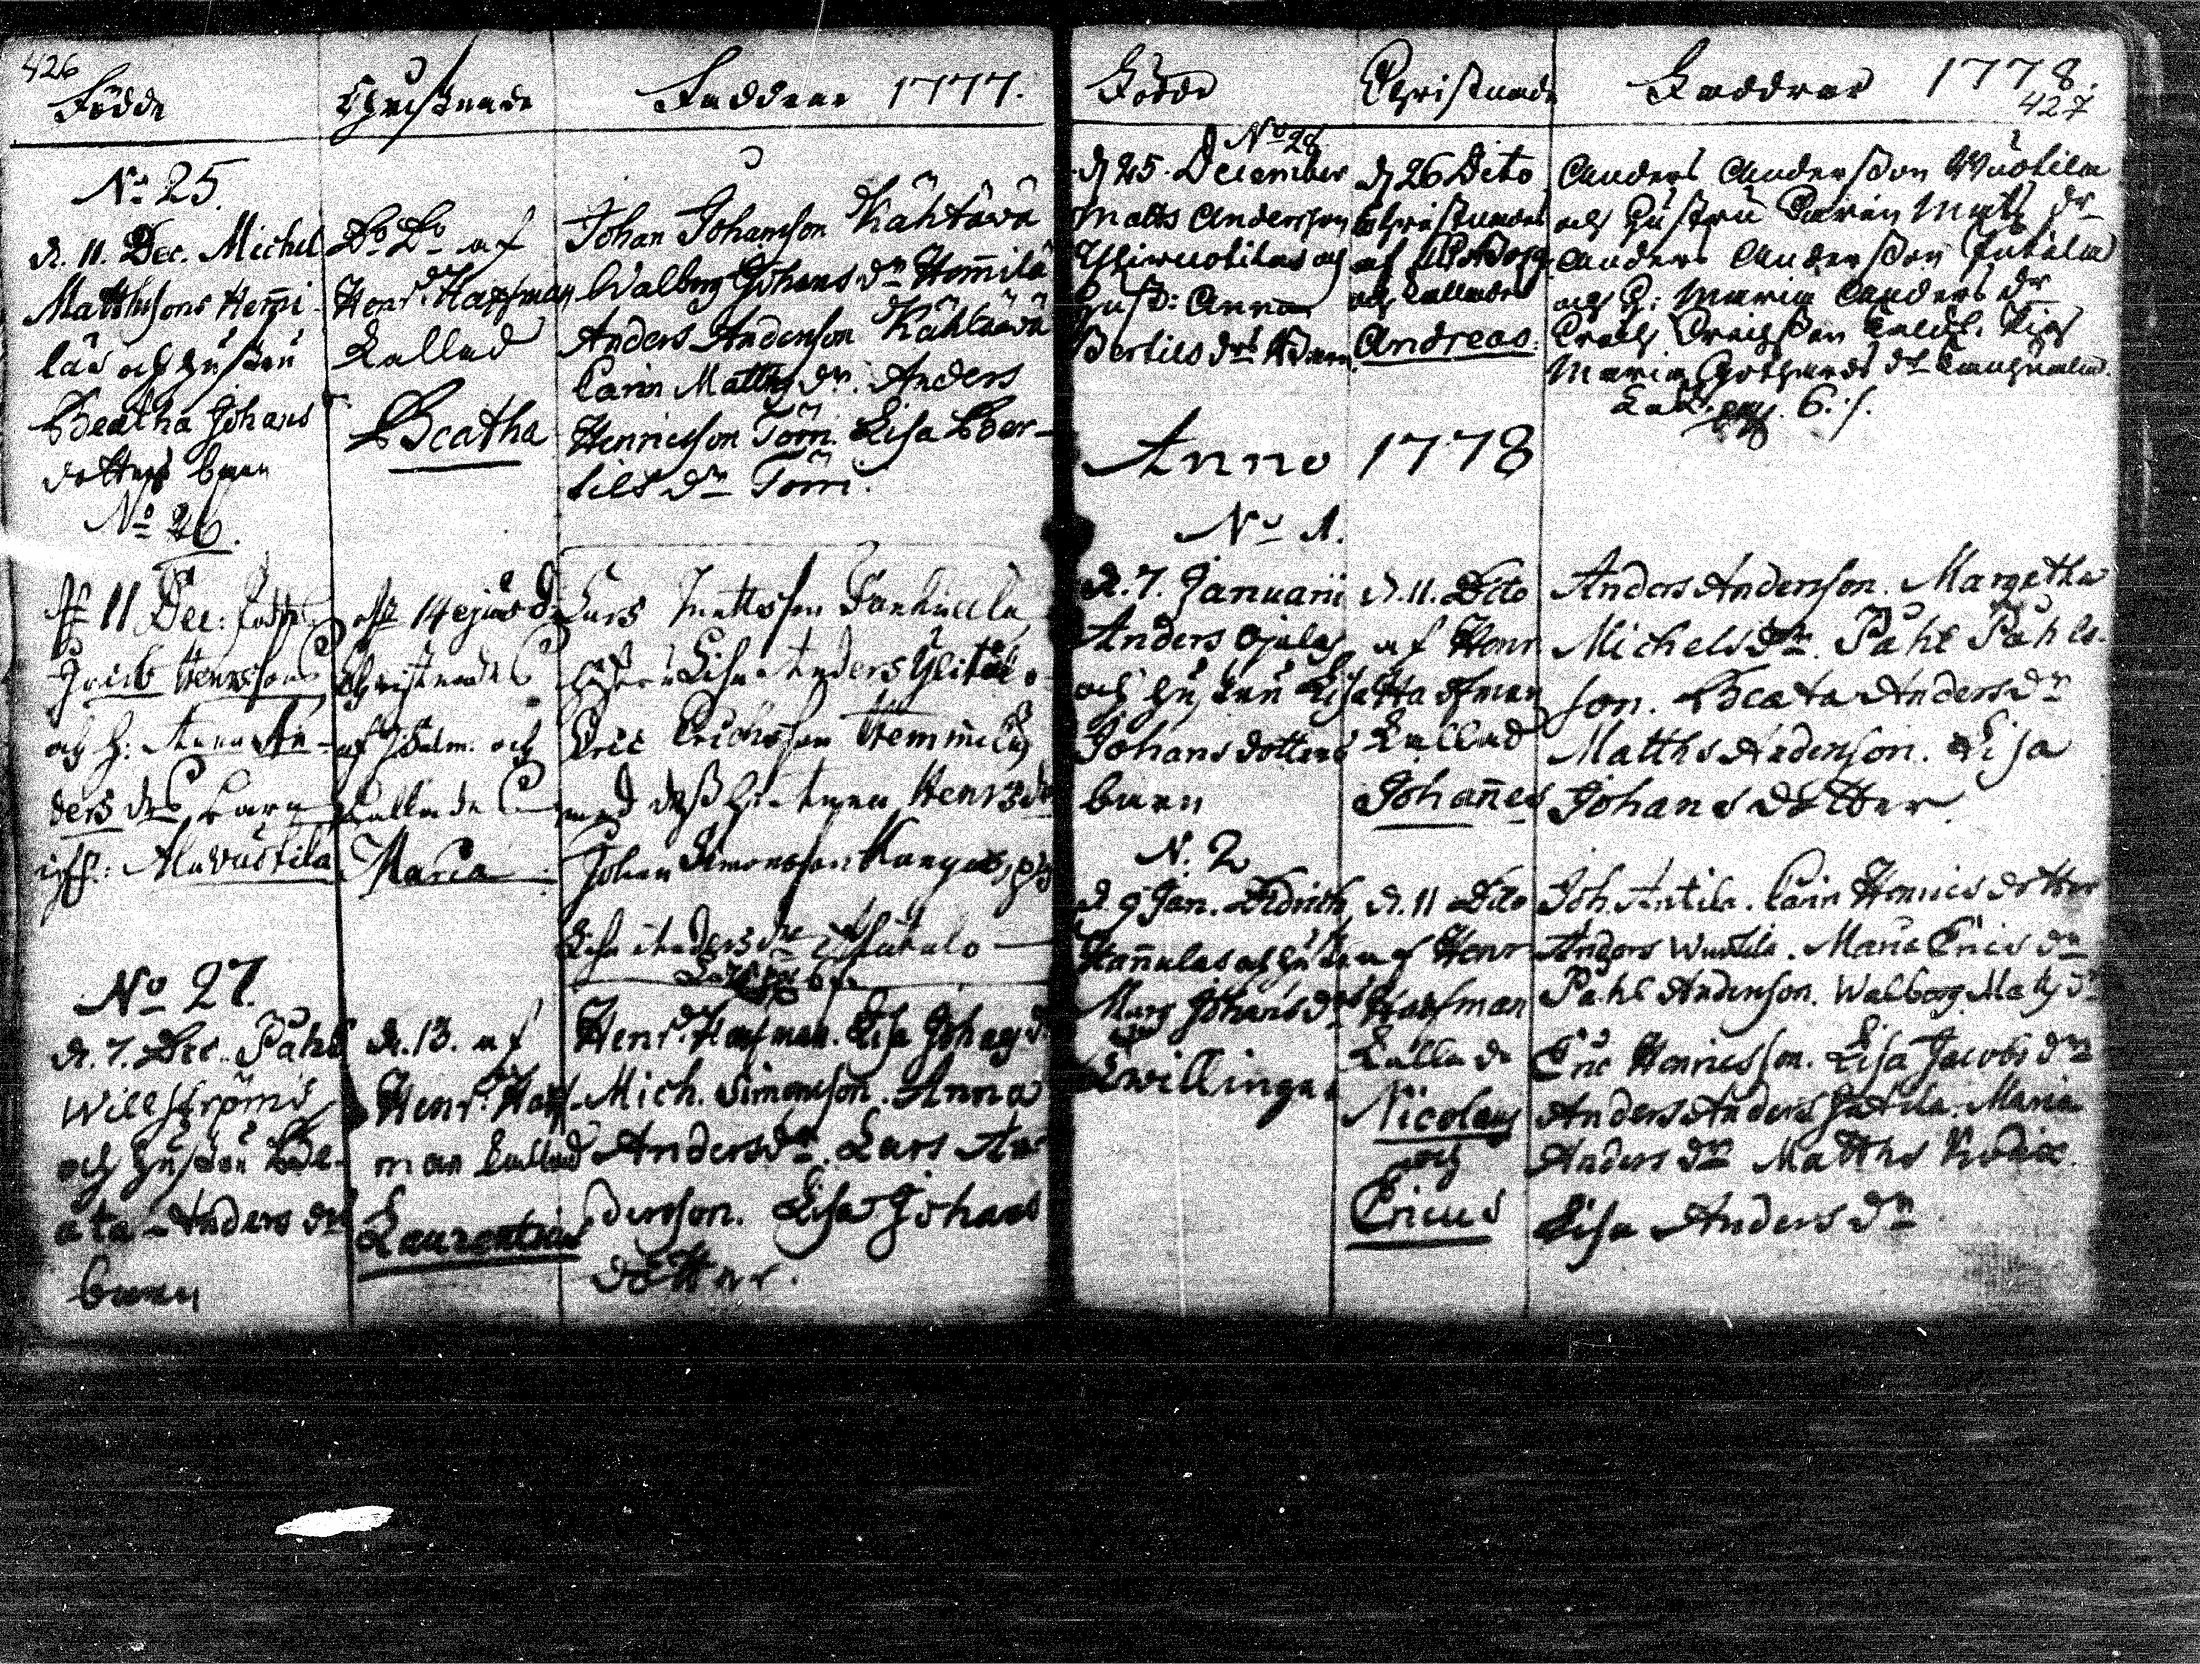 426
Födde
Christnade
Faddrar 1777.
No 25.
d. 11. Dec. Michel
Matthssons Hemmi-
läs och hustru
Beatha Johans
dotters barn
Do Do af
Henr. Haffman
Kallad
Beatha
Johan Johansson Kähtävä
Walborg Johans dr Hemmilä
Anders Andersson Kähtävä
Carin Matths dr. Anders
Henricsson Törri. Lisa Ber-
tils dr Törri.
No 26.
11 Dec: född
Henrssons
och h: Anna An-
ders drs barn
Alavuotila
14 ejusd.
Christnades
af och
Kallades
Maria
Lars Mattsson
hustru Lisa Anders
Eric Erichsson Hemmilä
med dess h: Anna Henrs dr
Johan Simonsson Kangas
Lisa Anders dr
No 27.
d. 7. Dec. Påhl
Willströms
och hustru Be-
ata Anders drs
barn
d. 13. af
Henr. Haff-
man kallad
Laurentius
Henr. Haffman. Lisa Johans dr
Mich. Simonsson. Anna
Anders dr. Lars An-
dersson. Lisa Johans
dotter.
Födde
Christnade
Faddrar 1778.
427
No 28
d 25. December
Matts Andersson
och
hust: Anna
Bertils drs Barn
d 26 Dito
Christnades
af
och kallades
Andreas.
Anders Andersson Wuotila
och hustru Carin Matts dr
Anders Andersson
och h: Maria Anders dr
Maria
Anno 1778
No 1.
d. 7. Januarii
Anders Ojalas
och hustru Lisa
Johans dotters
barn
d. 11. Dito
af Henr
Haffman
Kallad
Johannes
Anders Andersson. Margetha
Michels dr. Påhl Påhls-
son. Beata Anders dr
Matths Andersson. Lisa
Johans dotter.
N. 2
d. 9 Jan. Didrich
Hannulas och hustru
Marg Johans drs
Twillingar
d. 11 Dito
af Henr
Haffman
Kallade
Nicolaus
och
Ericus
Joh. Antila. Carin Henrics dotter
Anders Wuotila. Maria Erics dr
Påhl Andersson. Walborg Matts dr
Eric Henricsson. Lisa Jacobs dr
Anders Anders Maria
Anders dr Matths
Lisa Anders dr